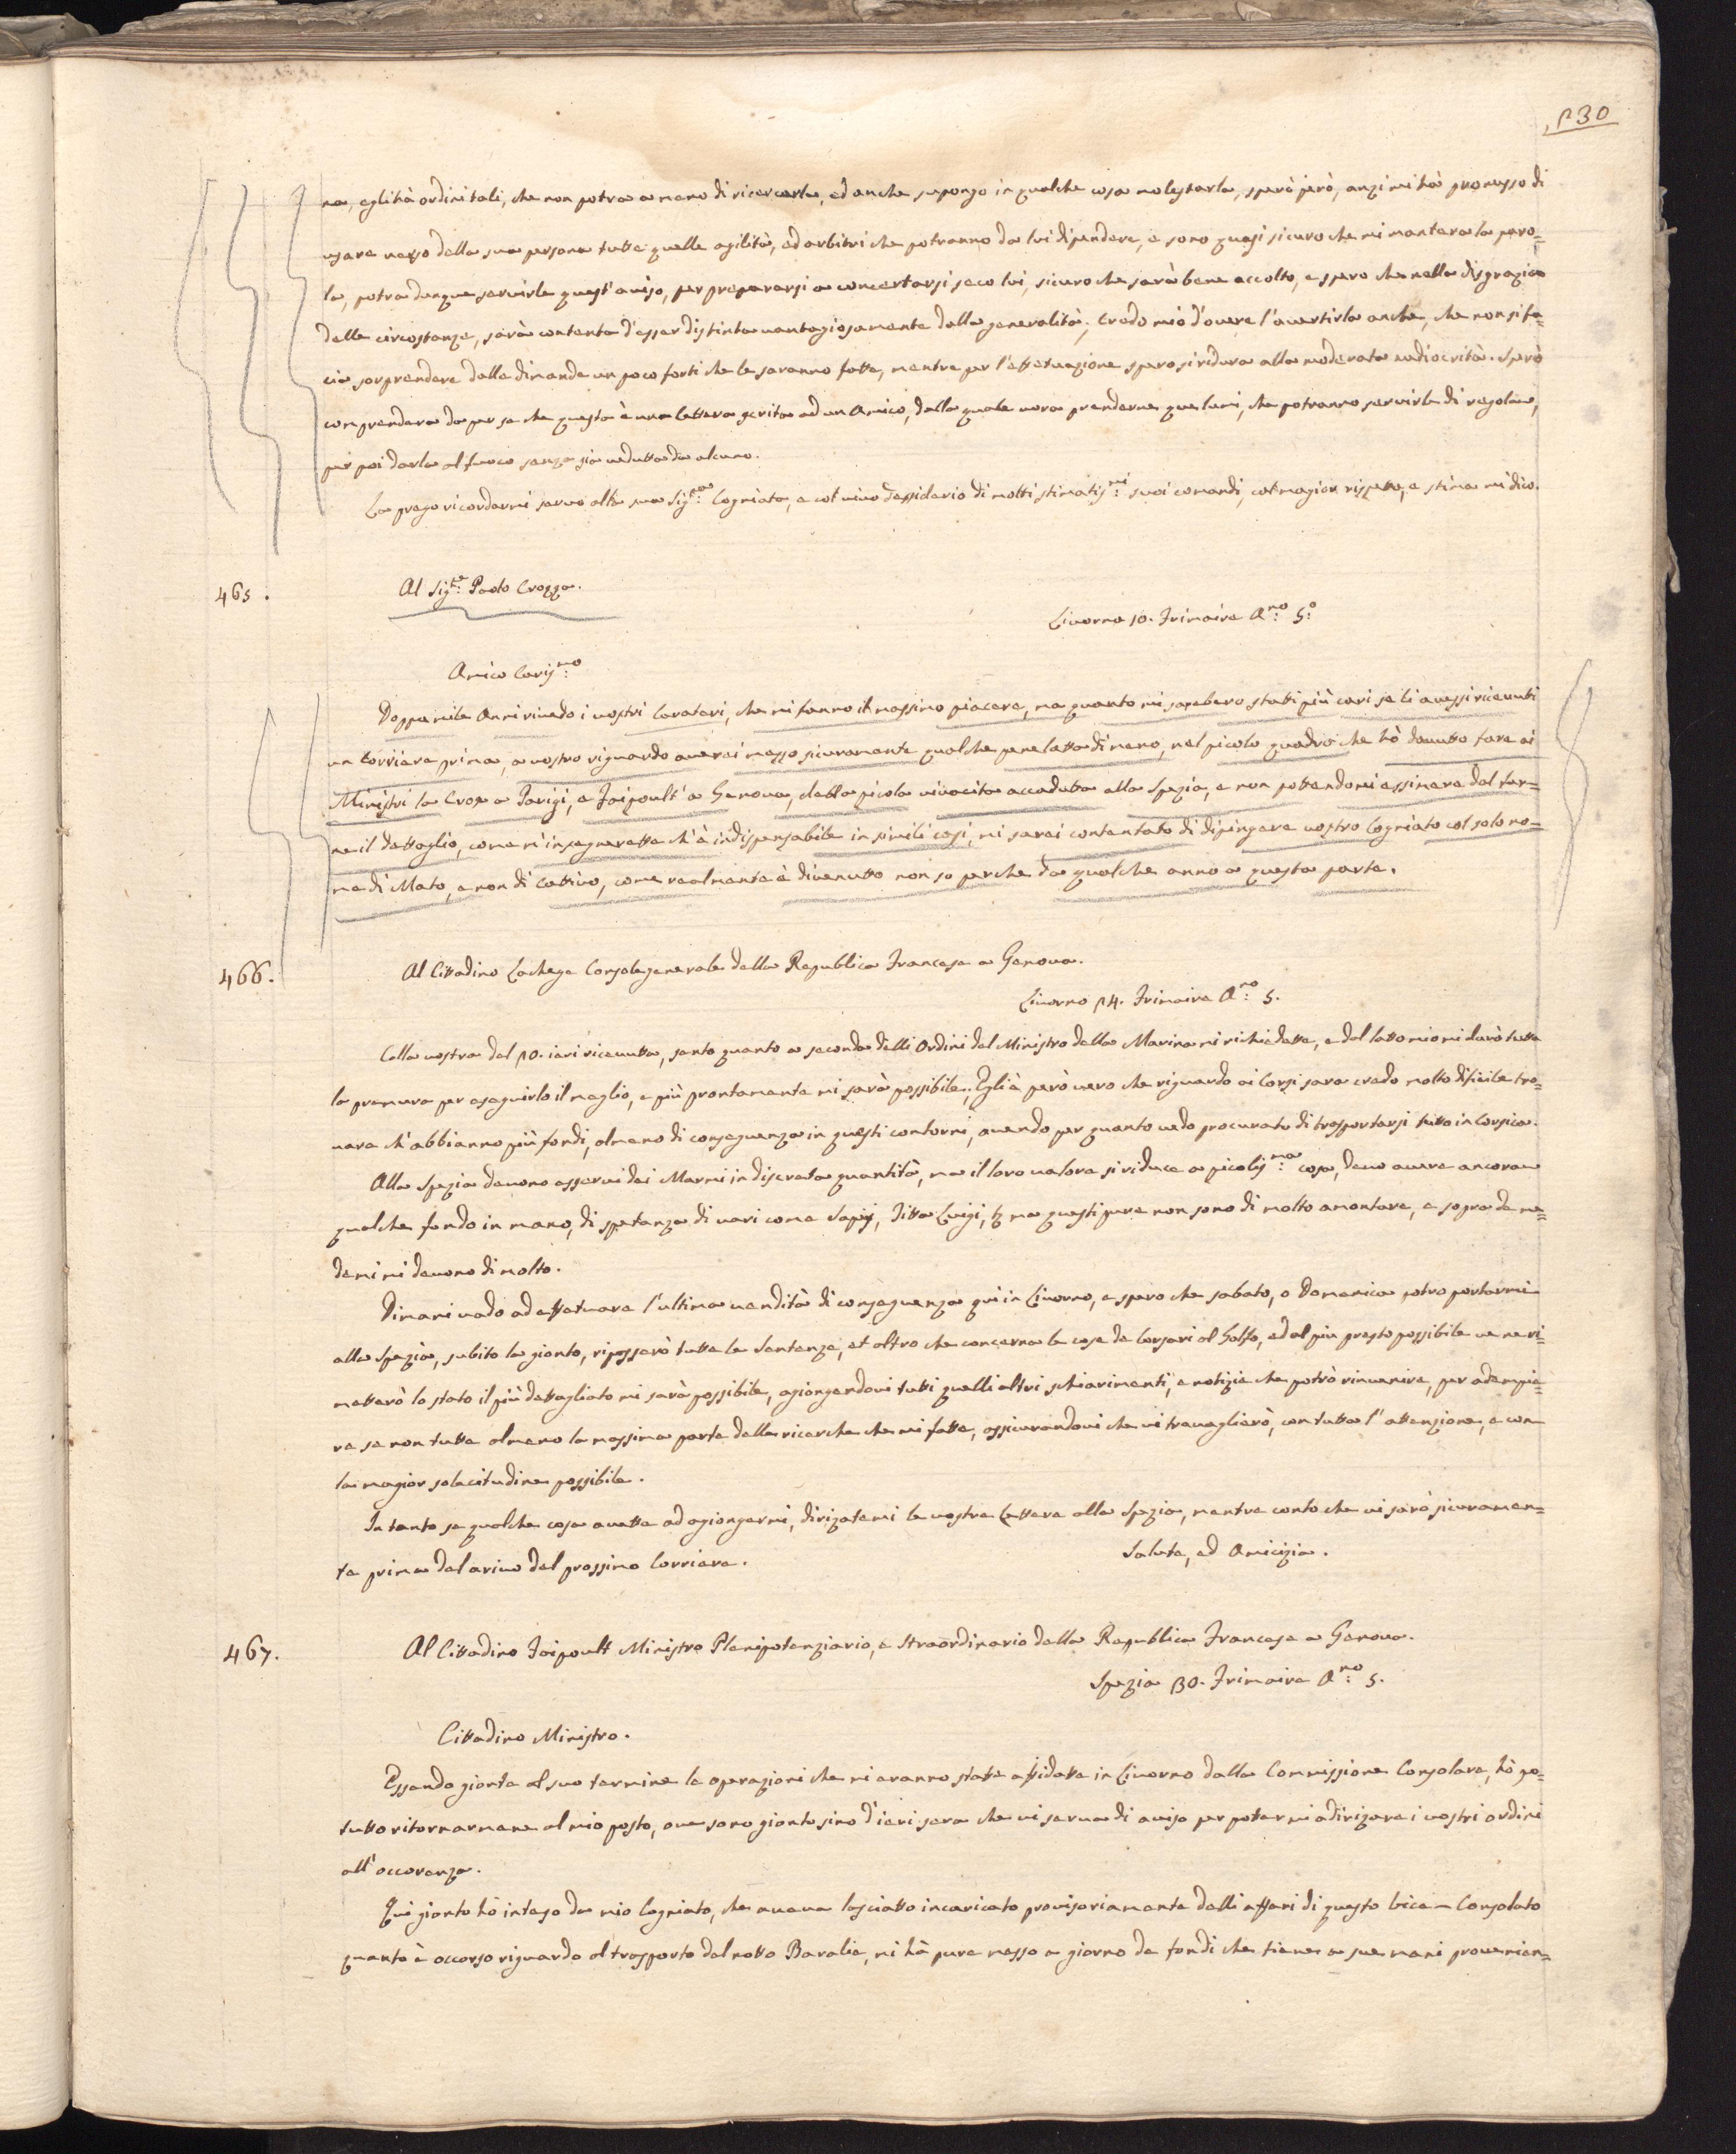 130
na, egli hà ordini tali, che non potra a meno di ricercarla, ed anche supongo in qualche cosa molestarla, sperò però, anzi mi hà promesso di
usare verso della sua persona tutte quelle agilità, ed arbitri che potranno da lui dipendere, e sono quasi sicuro che mi mantera la paro=
la, potra dunque servirle quest'aviso, per prepararsi a concertarsi seco lui, sicuro che sarà bene accolto, e spero che nella disgrazia
delle circostanze, sarà contenta d'esser distinta vantagiosamente dalla generalità; Credo mio d'overe l'avertirla anche, che non si fa=
cia sorprendere dalle dimande un poco forti che le saranno fatte, mentre per l'effetuazione spero si ridura alla moderata mediocrità. Sperò
comprendera da per se che questa è una lettera scrita ad un Amico, dalla quale vora prenderne que lumi, che potranno servirle di regola,
per poi darla al fuoco senza sia vedutta da alcuno.
La prego ricordarmi servo alla sua Sig.ra Cogniata, e col vivo dessiderio di molti stimatis.mi suoi comandi, col magior rispetto, e stima mi dico.
465.
Al Sig.re Paolo Crozza.
Livorno 10. Frimaire A.no 5.o
Amico Caris.mo
Doppo mile Anni rivedo i vostri Carateri, che mi fanno il massimo piacere, ma quanto mi sarebero stati più cari se li avessi ricevuti
un Corriere prima, a vostro riguardo averei messo sicuramente qualche penelatta di meno, nel picolo quadro che hò dovutto fare ai
Ministri la Croix a Parigi, e Faipoult' a Genova, della picola vivacita accaduta alla Spezia, e non potendomi essimere dal far=
ne il dettaglio, come m'insegnerette ch'è indispensabile in simili casi, mi sarei contentato di dipingere vostro Cogniato col solo no=
me di Mato, e non di Cattivo, come realmente è divenutto non so perche da qualche anno a questa parte.
466.
Al Cittadino Lachege Consolegenerale della Republica Francese a Genova.
Livorno 14. Frimaire A.no 5.
Colla vostra del 10. ieri ricevutta, sento quanto a seconda delli Ordini del Ministro della Marina mi richiedette, e dal latto mio mi darò tutta
la premura per eseguirlo il meglio, e più prontamente mi sarà possibile; Egli è però vero che riguardo ai Corsi sara credo molto dificile tro=
vare ch'abbianno più fondi, almeno di conseguenza in questi contorni, avendo per quanto vedo procurato di trasportarsi tutto in Corsica.
Alla Spezia devono esservi dei Marmi in discreta quantità, ma il loro valore si riduce a picolis.ma cosa, devo avere ancora
qualche fondo in mano, di spetanza di vari come Sapiŋ, Titta Luigi, &. ma questi pure non sono di molto amontare, e sopra de me=
demi mi devono di molto.
Dimani vado ad effetuare l'ultima vendità di conseguenza qui in Livorno, e spero che sabato, o Domenica potro portarmi
alla Spezia, subito la gionto, ripasserò tutte le Sentenze, et altro che concerne le cose de Corsari al Golfo, ed al più presto possibile ve ne ri=
metterò lo stato il più dettagliato mi sarà possibile, agiongendovi tutti quelli altri schiarimenti, e notizie che potrò rinvenire, per adempie=
re se non tutte almeno la massima parte delle ricerche che mi fatte, assicurandovi che vi travaglierò, con tutta l'attenzione, e con
la magior solecitudine possibile.
In tanto se qualche cosa avette ad agiongermi, dirizatemi le vostre Lettere alla Spezia, mentre conto che vi sarò sicuramen=
te prima del arivo del prossimo Corriere.
Salute, ed Amicizia.
467.
Al Cittadino Faipoult Ministro Plenipotenziario, e Straordinario della Republica Francese a Genova.
Spezia 30. Frimaire A.no 5.
Cittadino Ministro.
Essendo gionte al suo termine le operazioni che mi eranno state affidatte in Livorno dalla Commissione Consolare, hò po=
tutto ritornarmene al mio posto, ove sono gionto sino d'ieri sera che vi serva di aviso per potermi adirizare i vostri ordini
all'occorenza.
Qui gionto hò inteso da mio Cogniato, che aveva lasciatto incaricato provisoriamente delli affari di questo Vice=Consolato
quanto è occorso riguardo al trasporto del notto Baralie, mi hà pure messo a giorno de fondi che tiene a sue mani provenien=